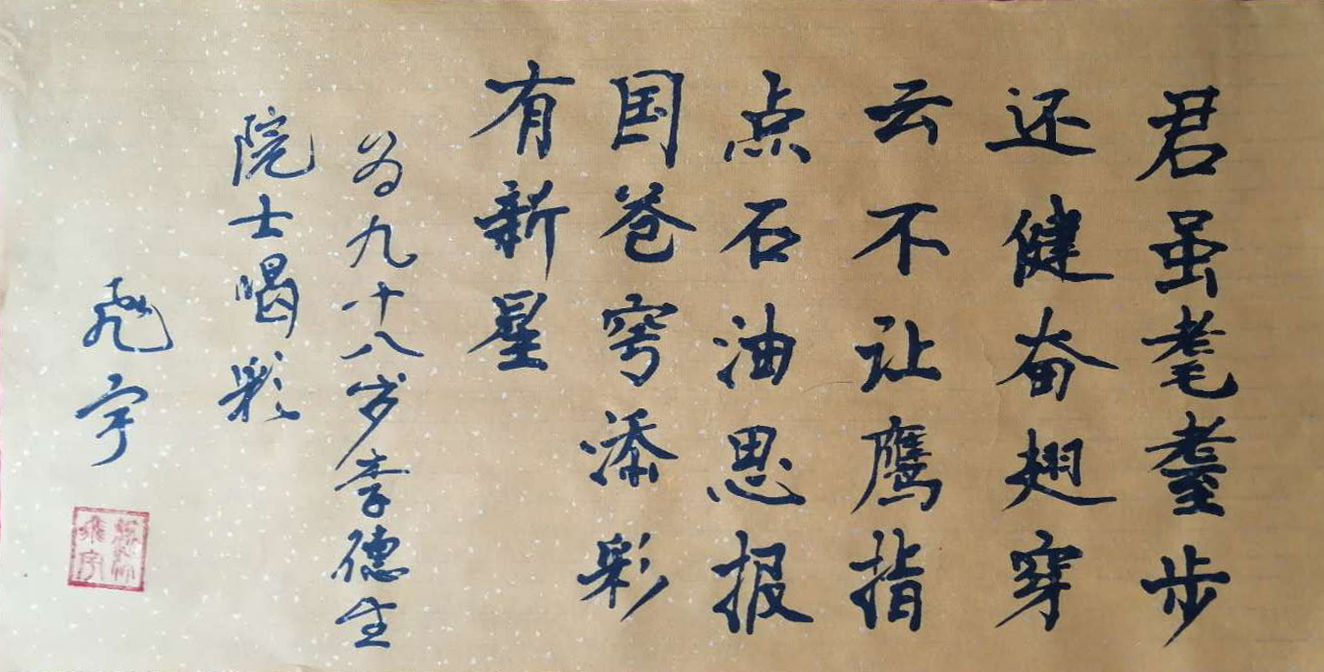 君虽耄耋步
还健奋翅穿
云不让鹰指
点石油思报
国苍穹添彩
有新星
为九十八岁李德生
院士喝彩
飛宇